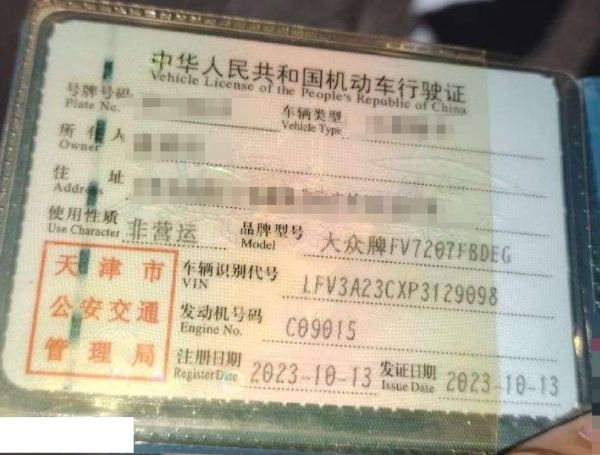 中华人民共和国机动车行驶证
Vehicle License of the People's Republic of China
号牌号码
Plate No.
车辆类型
Vehicle Type
所有人
Owner
住址
Address
使用性质 非营运
Use Character
品牌型号 大众牌FV7207FBDEG
Model
天津市
公安交通
管理局
车辆识别代号 LFV3A23CXP3129098
VIN
发动机号码 C09015
Engine No.
注册日期 2023-10-13
Register Date
发证日期 2023-10-13
Issue Date